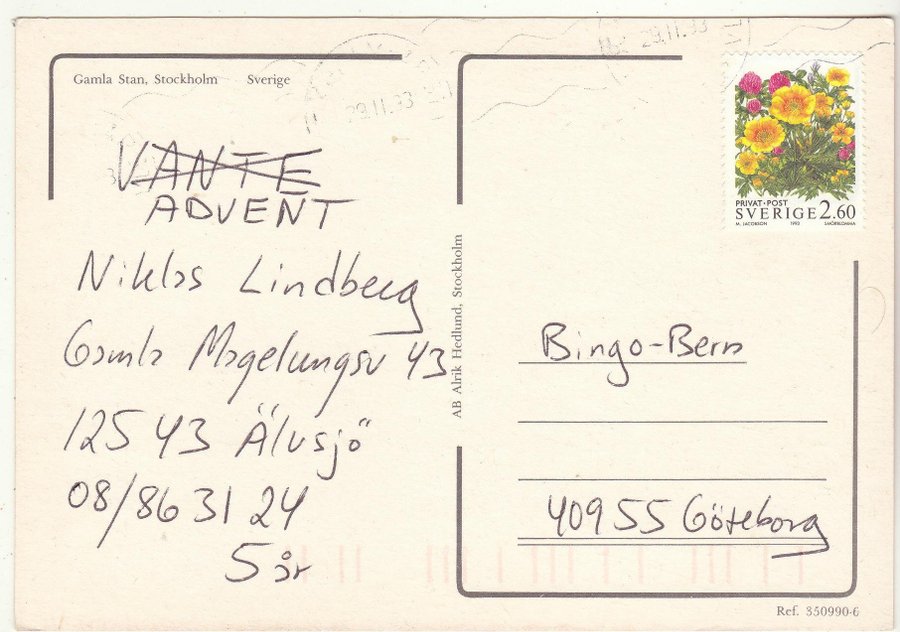 Gamla Stan, Stockholm Sverige
29.11.93
29.11.93
VANTE
ADVENT
Niklas Lindberg
Gamla Magelungsv 43
125 43 Älvsjö
08/86 31 24
5 år
AB Alrik Hedlund, Stockholm
PRIVAT·POST
SVERIGE 2.60
M. JACOBSON 1993 SMÖRBLOMMA
Bingo-Bern
409 55 Göteborg
Ref. 350990-6